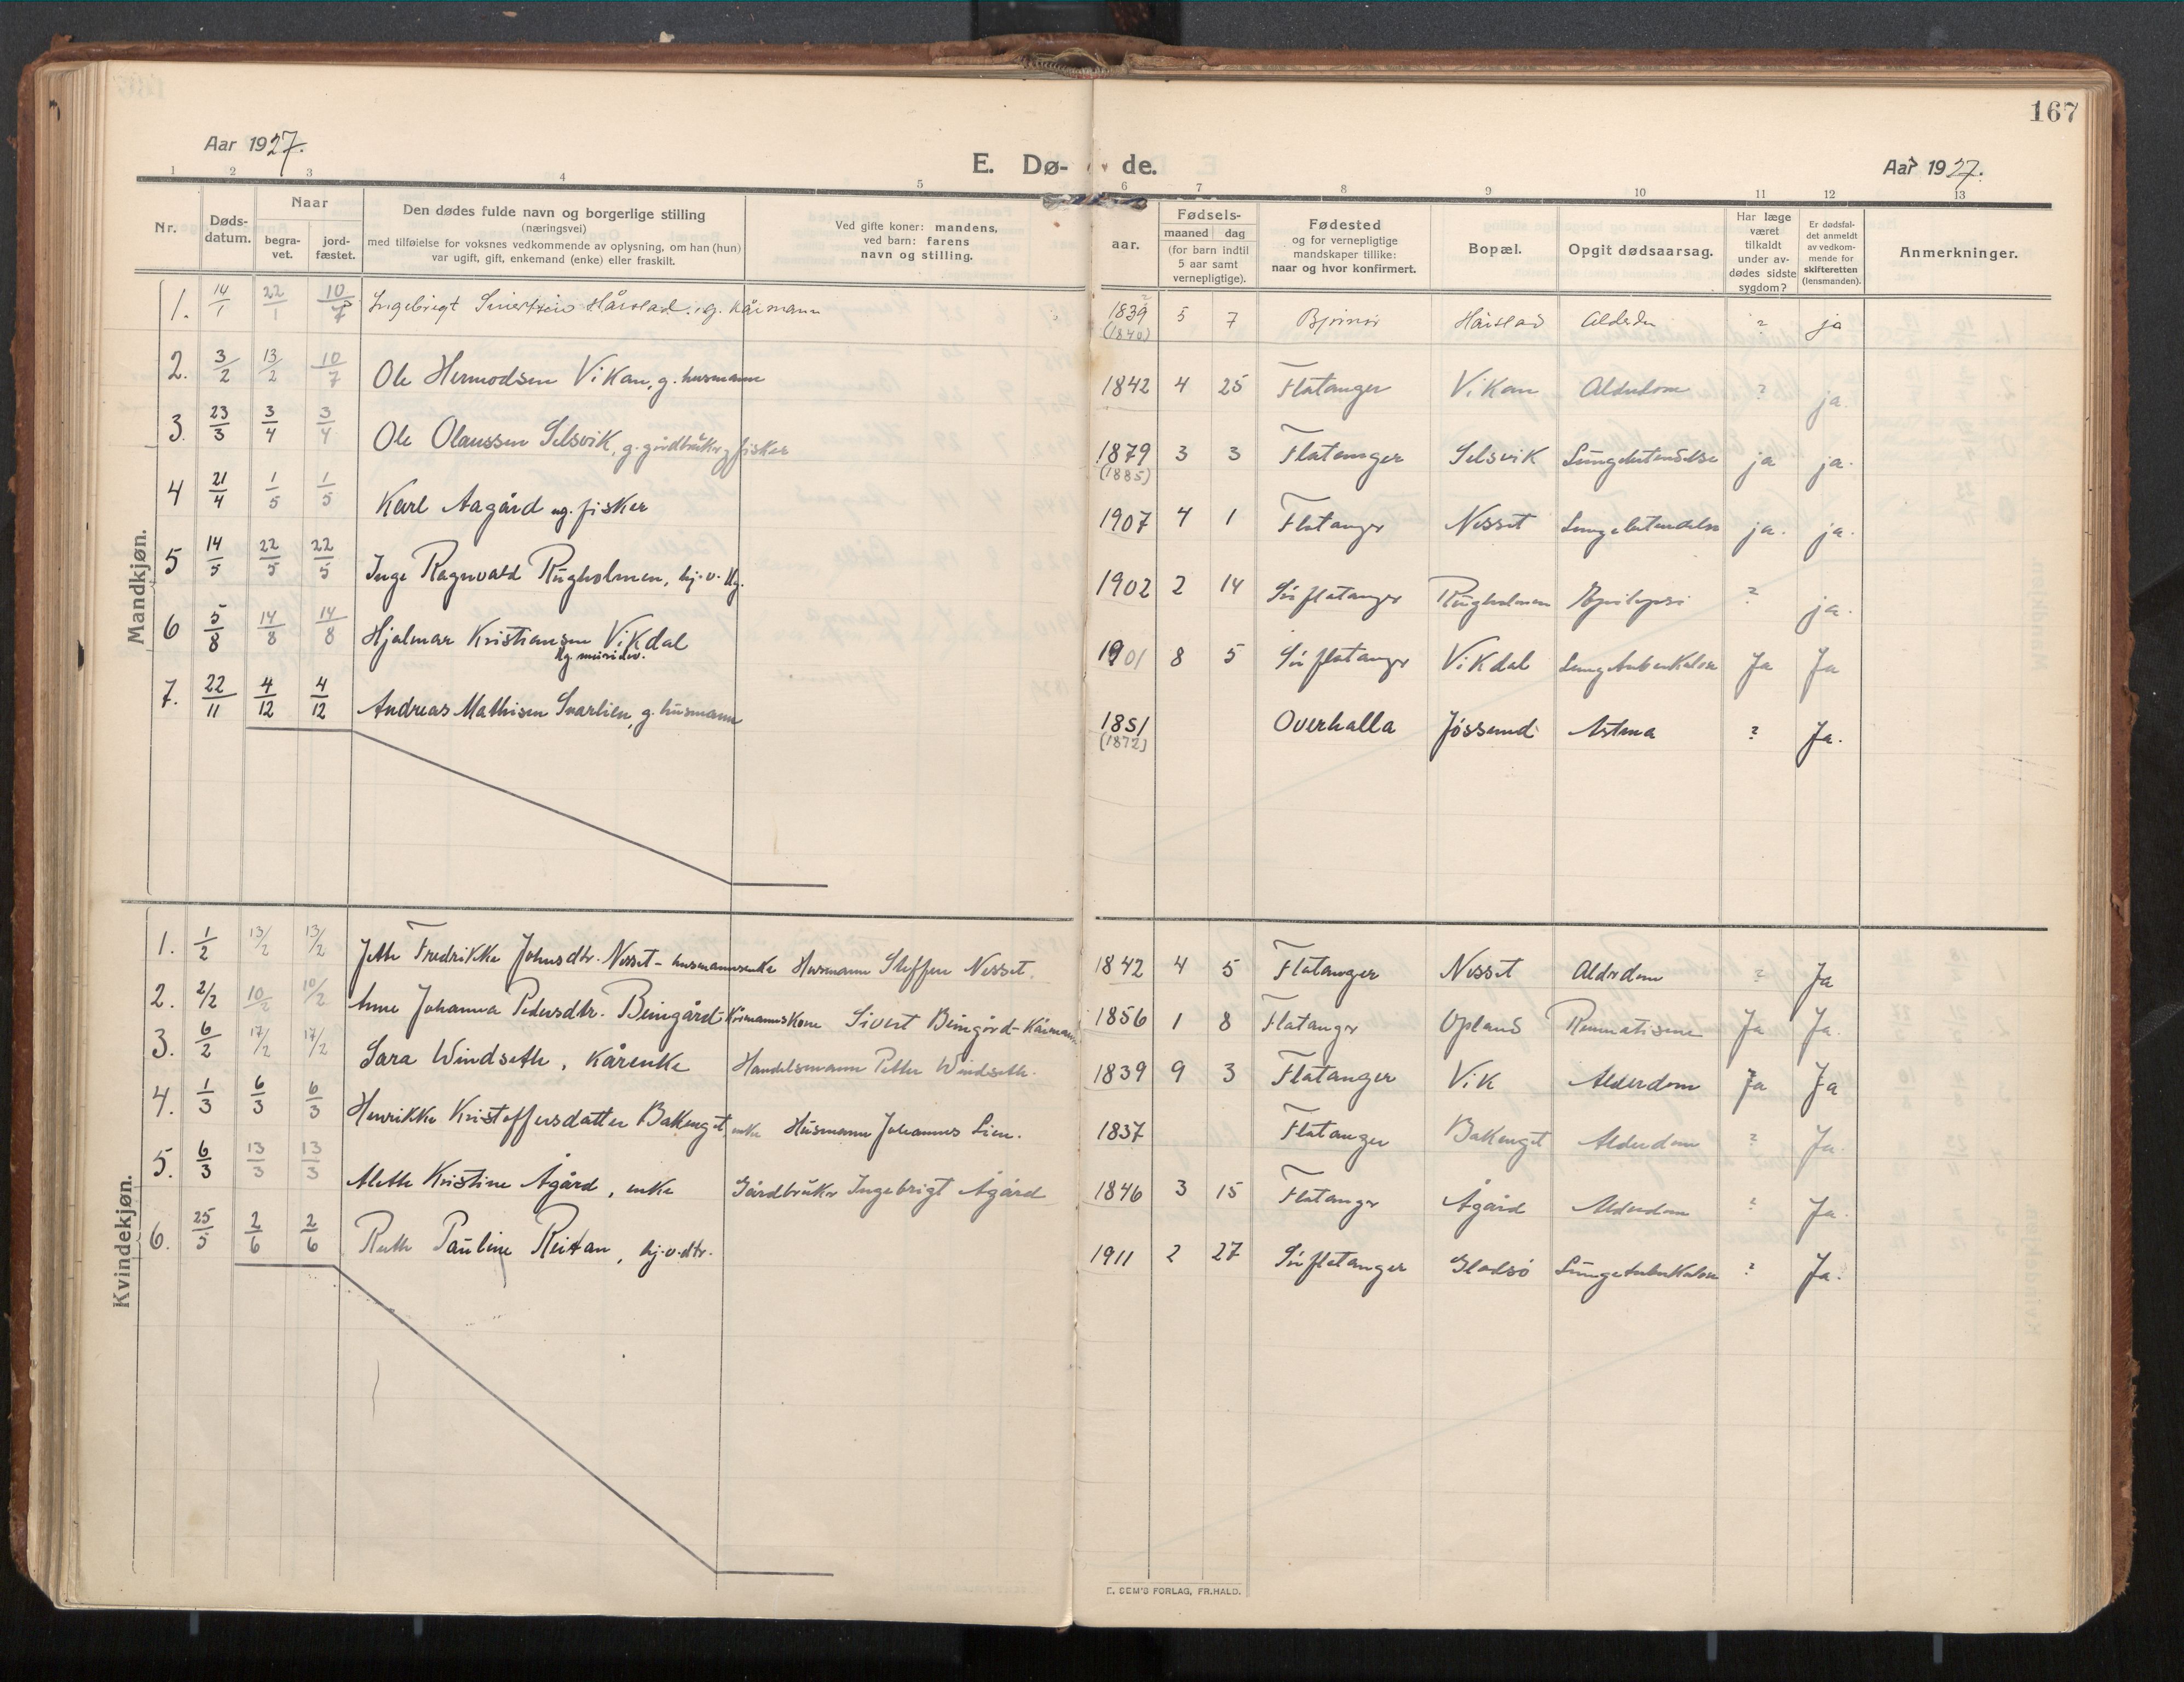 167
Aar 1927.
E. Dø- de.
Aar 1927.
1 2 3 4 5 6 7 8 9 10 11 12 13
Nr.
Døds-
datum.
Naar
begra-
vet.
jord-
fæstet.
Den dødes fulde navn og borgerlige stilling
(næringsvei)
med tilføielse for voksnes vedkommende av oplysning, om han (hun)
var ugift, gift, enkemand (enke) eller fraskilt.
Ved gifte koner: mandens,
ved barn: farens
navn og stilling.
aar.
Fødsels-
maaned dag
(for barn indtil
5 aar samt
vernepligtige).
Fødested
og for vernepligtige
mandskaper tillike:
naar og hvor konfirmert.
Bopæl.
Opgit dødsaarsag.
Har læge
været
tilkaldt
under av-
dødes sidste
sygdom?
Er dødsfal-
det anmeldt
av vedkom-
mende for
skifteretten
(lensmanden).
Anmerkninger.
Mandkjøn.
1. 14/1 22/1 10/7 Ingebrigt Hårstad. g. kårmann 1839 (1840) 5 7 Hårstad ? ja
2. 3/2 13/2 10/7 Ole Hermodsen Vikan, g. husmann 1842 4 25 Flatanger Vikan Alderdom ? ja.
3. 23/3 3/4 3/4 Ole Olaussen Selsvik, g. gårdbruker og fisker 1879 (1885) 3 3 Flatanger Selsvik Lungebetendelse ja ja.
4 21/4 1/5 1/5 Karl Aagård ug. fisker 1907 4 1 Flatanger Nesset Lungebetendelse ja. ja.
5 14/5 22/5 22/5 Inge Ragnvald Rugholmen, hj. v. Ug. 1902 2 14 Sør flatanger Rugholmen Epilepsi ? ja.
6 5/8 14/8 14/8 Hjalmar Kristiansen Vikdal
Ug.
1901 8 5 Sør flatanger Vikdal Lungetuberkulose Ja Ja
7. 22/11 4/12 4/12 Andreas Mathisen Svarlien, g. husmann 1851 (1872) Overhalla Jøssund Astma ? Ja.
Kvindekjøn.
1. 1/2 13/2 13/2 Jette Fredrikke Johnsdtr. Nesset - husmannsenke Husmann Steffen Nesset. 1842 4 5 Flatanger Nesset Alderdom ? Ja
2. 2/2 10/2 10/2 Anne Johanna Pedersdtr. Beingård - Kårmannskone Sivert Beingård - Kårmann 1856 1 8 Flatanger Opland Reumatisme Ja Ja.
3. 6/2 17/2 17/2 Sara Windseth, kårenke Handelsmann Petter Windseth. 1839 9 3 Flatanger Vik Alderdom Ja Ja
4. 1/3 6/3 6/3 Henrikke Kristoffersdatter Bakenget, enke Husmann Johannes Lien. 1837 Flatanger Bakenget Alderdom ? Ja.
5. 6/3 13/3 13/3 Alette Kristine Ågård, enke Gårdbruker Ingebrigt Ågård 1846 3 15 Flatanger Ågård Alderdom ? Ja.
6. 25/5 2/6 2/6 Ruth Pauline Reitan, hj. v. dtr. 1911 2 27 Sør flatanger Gladsø Lungetuberkulose ? Ja.
E. SEM'S FORLAG, FR.HALD.